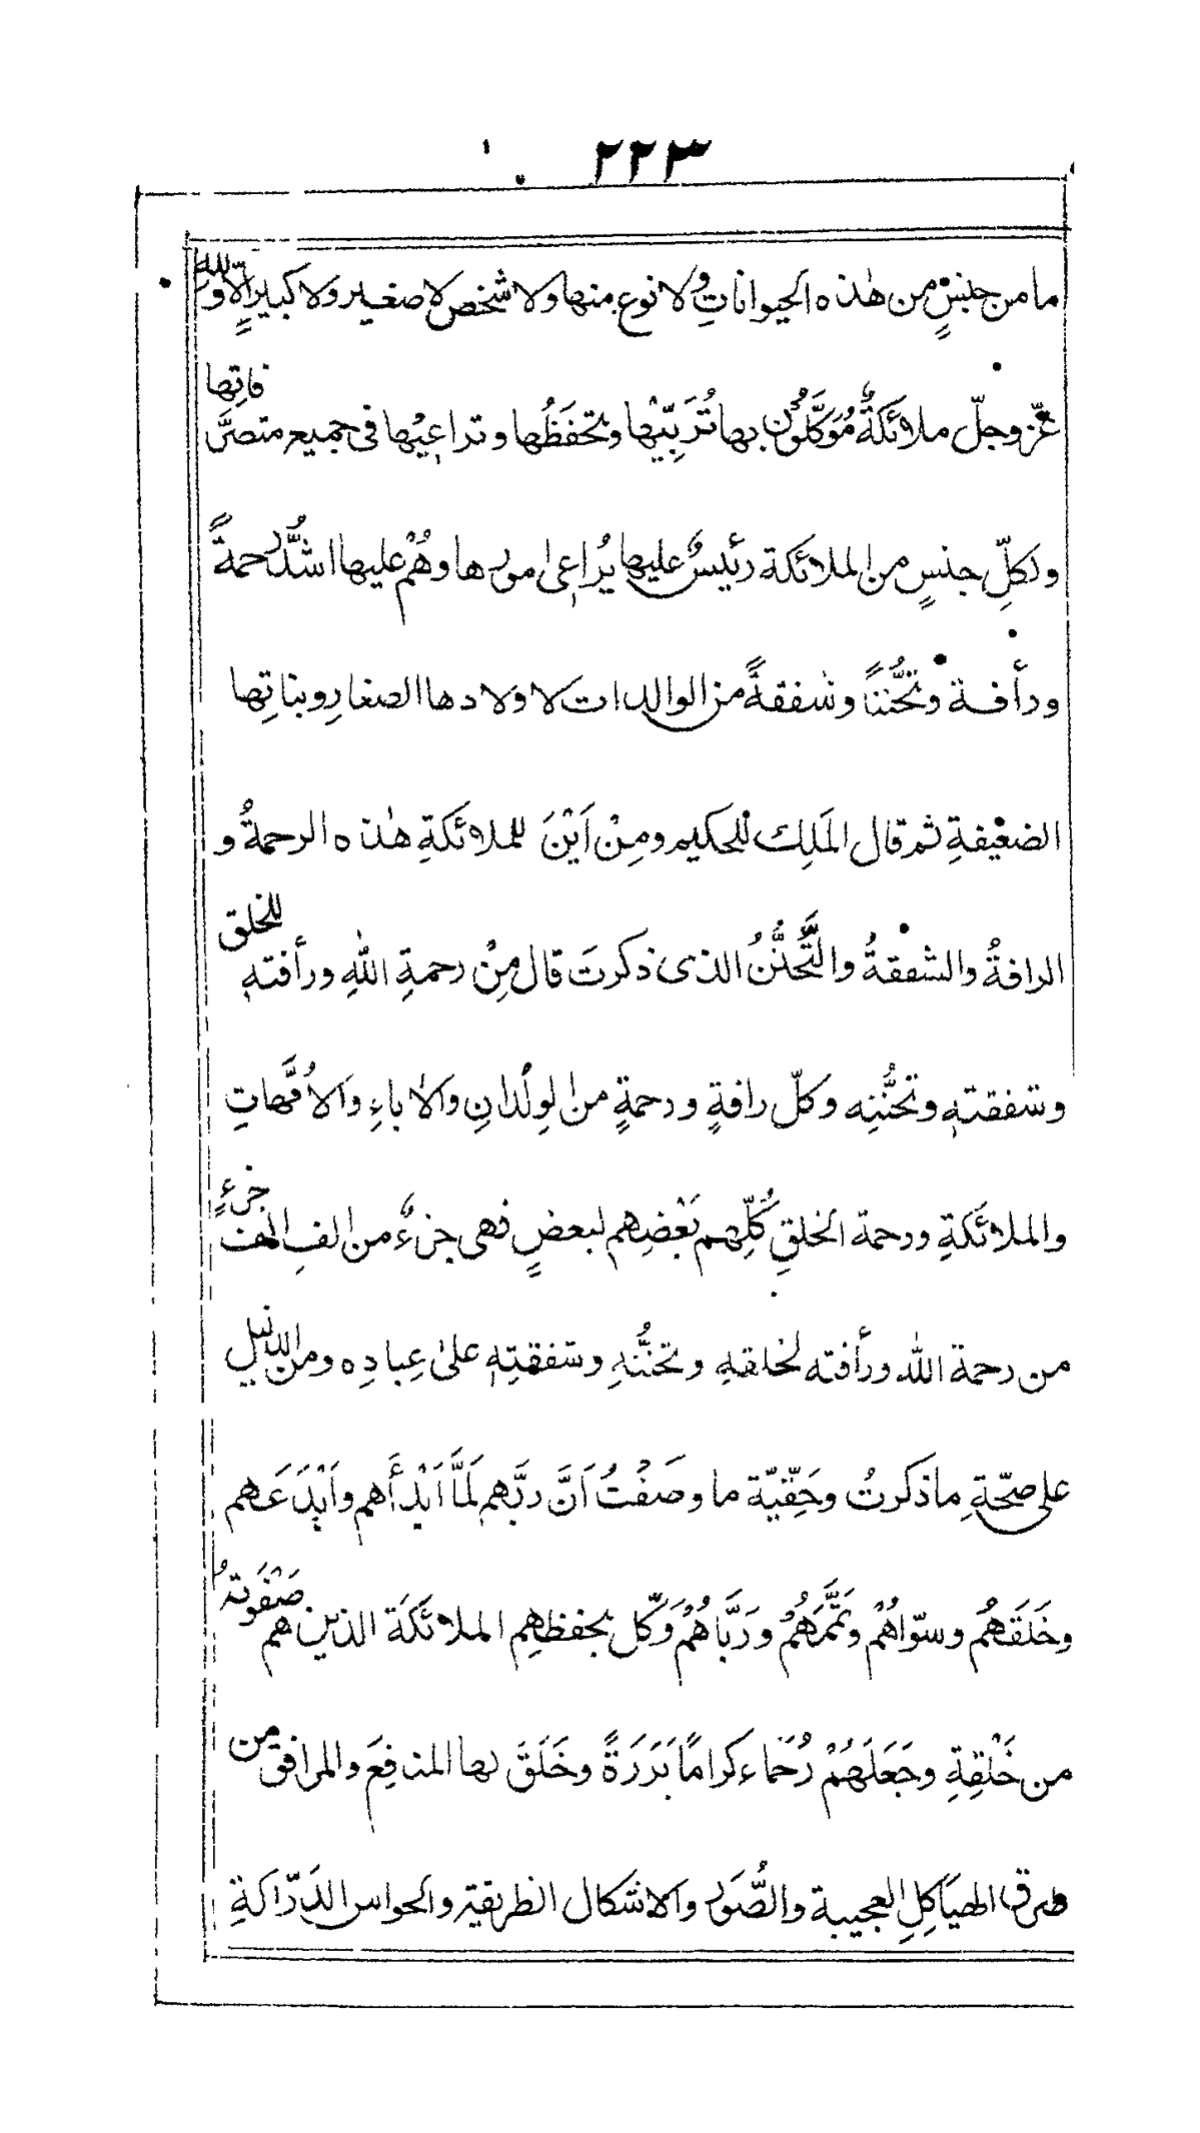 ٢٢٣
ما من جنسٍ من هٰذه الحيوانات ولا نوع منها ولا شخص لا صغير ولا كبيرٍ الّا ولله
عزّ وجلّ ملائكةٌ مُوَكَّلُون بها تُرَبِّيْها وتحفَظُها وتراعِيْها فى جميع متصرَّفاتِها
ولكلِّ جنسٍ من الملائكة رئيسٌ عليها يُراعى امورها وهُمْ عليها اشدُّ رحمةً
ورأفة وتحُّنناً وشفقةً من الوالدات لاولادها الصغارِ وبناتِها
الضعيْفةِ ثم قال المَلِك للحكيم ومِنْ اَيْنَ للملائكَةِ هٰذه الرحمةُ و
الرافةُ والشفقةُ والتَّحنُّنُ الذى ذكرتَ قال مِنْ رحمةِ اللهِ ورأفتهٖ للخلق
وشفقتهٖ وتحنُّنِه وكلّ رافةٍ ورحمةٍ من الوِلْدانِ والاٰباءِ والاُمَّهاتِ
والملائَكةِ ورحمة الخلقِ كُلِّهم بَعْضِهم لبعضٍ فهى جزءٌ من الفِ الف جزءٍ
من رحمة الله ورأفته لخلقهٖ وتحنُّنهِ وشفقتِهٖ علىٰ عِبادِه ومن الدليل
على صحّةِ ما ذكرتُ وحَقِّيّة ما وصَفْتُ اَنَّ ربَّهم لَمَّا اَبْدأَهم واَبْدَعَهم
وخَلَقَهُم وسوّاهُمْ وتمَّمَهُمْ ورَبَّاهُمْ وَكّل بحفظهِم الملائَكَة الذين هم صَفْوَتُهُ
من خَلْقِهِ وجَعَلَهُمْ رُحَماء كراماً بَرَرَةً وخَلَقَ لها المنافِعَ والمرافق من
طرق الهيَاكِلِ العجيبة والصُّوَر والاشكال الظريفة والحواس الدَرّاكةِ